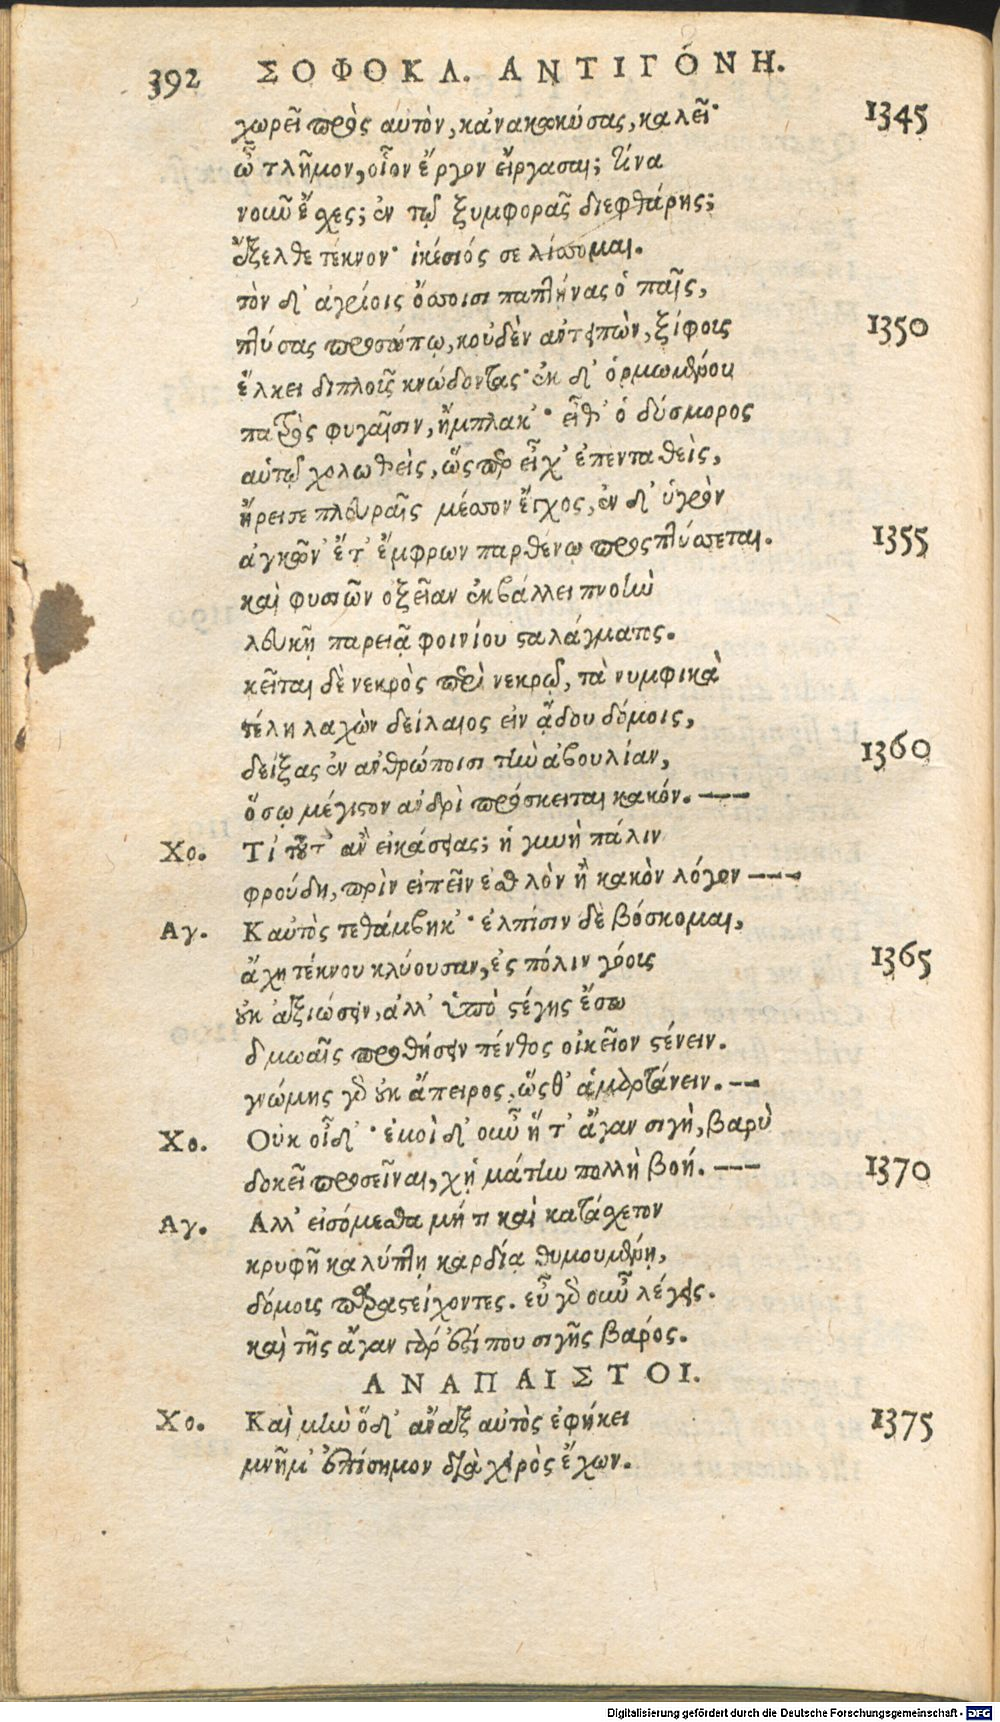 392 ΣΟΦΟΚΛ. ΑΝΤΙΓΌΝΗ.
χωρεῖ πρὸς αὐτὸν, κἀνακωκύσας, καλεῖ· 1345
ὦ τλῆμον, οἷον ἔργον εἴργασαι; τίνα
νοιῦ ἔχες; ἐν τῷ ξυμφορᾶς διεφθάρης;
ἔξελθε τέκνον· ἱκέσιός σε λίσσομαι.
τὸν δ' ἀγρίοις ὄσσοισι παπτήνας ὁ παῖς,
πτύσας προσώπῳ, κοὐδὲν ἀντειπὼν, ξίφοις 1350
ἕλκει διπλοῖς κνώδοντας· ἐκ δ' ὁρμωμένου
πατρὸς φυγαῖσιν, ἤμπλακ'· εἶθ' ὁ δύσμορος
αὑτῷ χολωθεὶς, ὥσπερ εἶχ' ἐπενταθεὶς,
ἤρεισε πλευραῖς μέσσον ἔγχος, ἐν δ' ὑγρὸν
ἀγκῶν' ἔτ' ἔμφρων παρθένῳ προσπτύσσεται. 1355
καὶ φυσιῶν ὀξεῖαν ἐκβάλλει πνοὴν
λευκῇ παρειᾷ φοινίου σταλάγματος.
κεῖται δὲ νεκρὸς περὶ νεκρῷ, τὰ νυμφικὰ
τέλη λαχὼν δείλαιος εἰν ᾅδου δόμοις,
δείξας ἐν ἀνθρώποισι τὴν ἀβουλίαν, 1360
ὅσῳ μέγιστον ἀνδρὶ πρόσκειται κακόν. ---
Χο. Τί τοῦτ' ἂν εἰκάσειας; ἡ γυνὴ πάλιν
φρούδη, πρὶν εἰπεῖν ἐσθλὸν ἢ κακὸν λόγον ---
Αγ. Καὐτὸς τεθάμβηκ'· ἐλπίσιν δὲ βόσκομαι,
ἄχη τέκνου κλύουσαν, ἐς πόλιν γόοις 1365
οὐκ ἀξιώσειν, ἀλλ' ὑπὸ στέγης ἔσω
δμωαῖς προθήσειν πένθος οἰκεῖον στένειν.
γνώμης γὰρ οὐκ ἄπειρος, ὥσθ' ἁμαρτάνειν. --
Χο. Οὐκ οἶδ'· ἐμοὶ δ' οιῦ ἥ τ' ἄγαν σιγὴ, βαρὺ
δοκεῖ προσεῖναι, χἡ μάτην πολλὴ βοή. --- 1370
Αγ. Αλλ' εἰσόμεσθα μή τι καὶ κατάσχετον
κρυφῆ καλύπτῃ καρδίᾳ θυμουμένῃ,
δόμοις παραστείχοντες. εὖ γὰρ οιῦ λέγεις.
καὶ τῆς ἄγαν γάρ ἐστί που σιγῆς βάρος.
ΑΝΑΠΑΙΣΤΟΙ.
Χο. Καὶ μὴν ὅδ' ἄναξ αὐτὸς ἐφήκει 1375
μνῆμ' ἐπίσημον διὰ χειρὸς ἔχων.
Digitalisierung gefördert durch die Deutsche Forschungsgemeinschaft - DFG